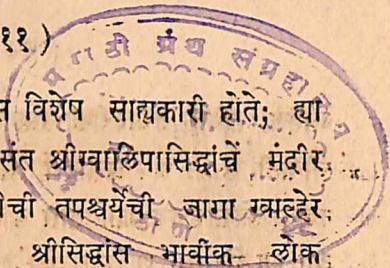 ११)
मराठी ग्रंथ संग्रहालय
विशेष साह्यकारी होते; ह्या
संत श्रीग्वालिपासिद्धांचें मंदीर
ची तपश्चर्येची जागा ग्वाल्हेर
श्रीसिद्धांस भावीक लोक